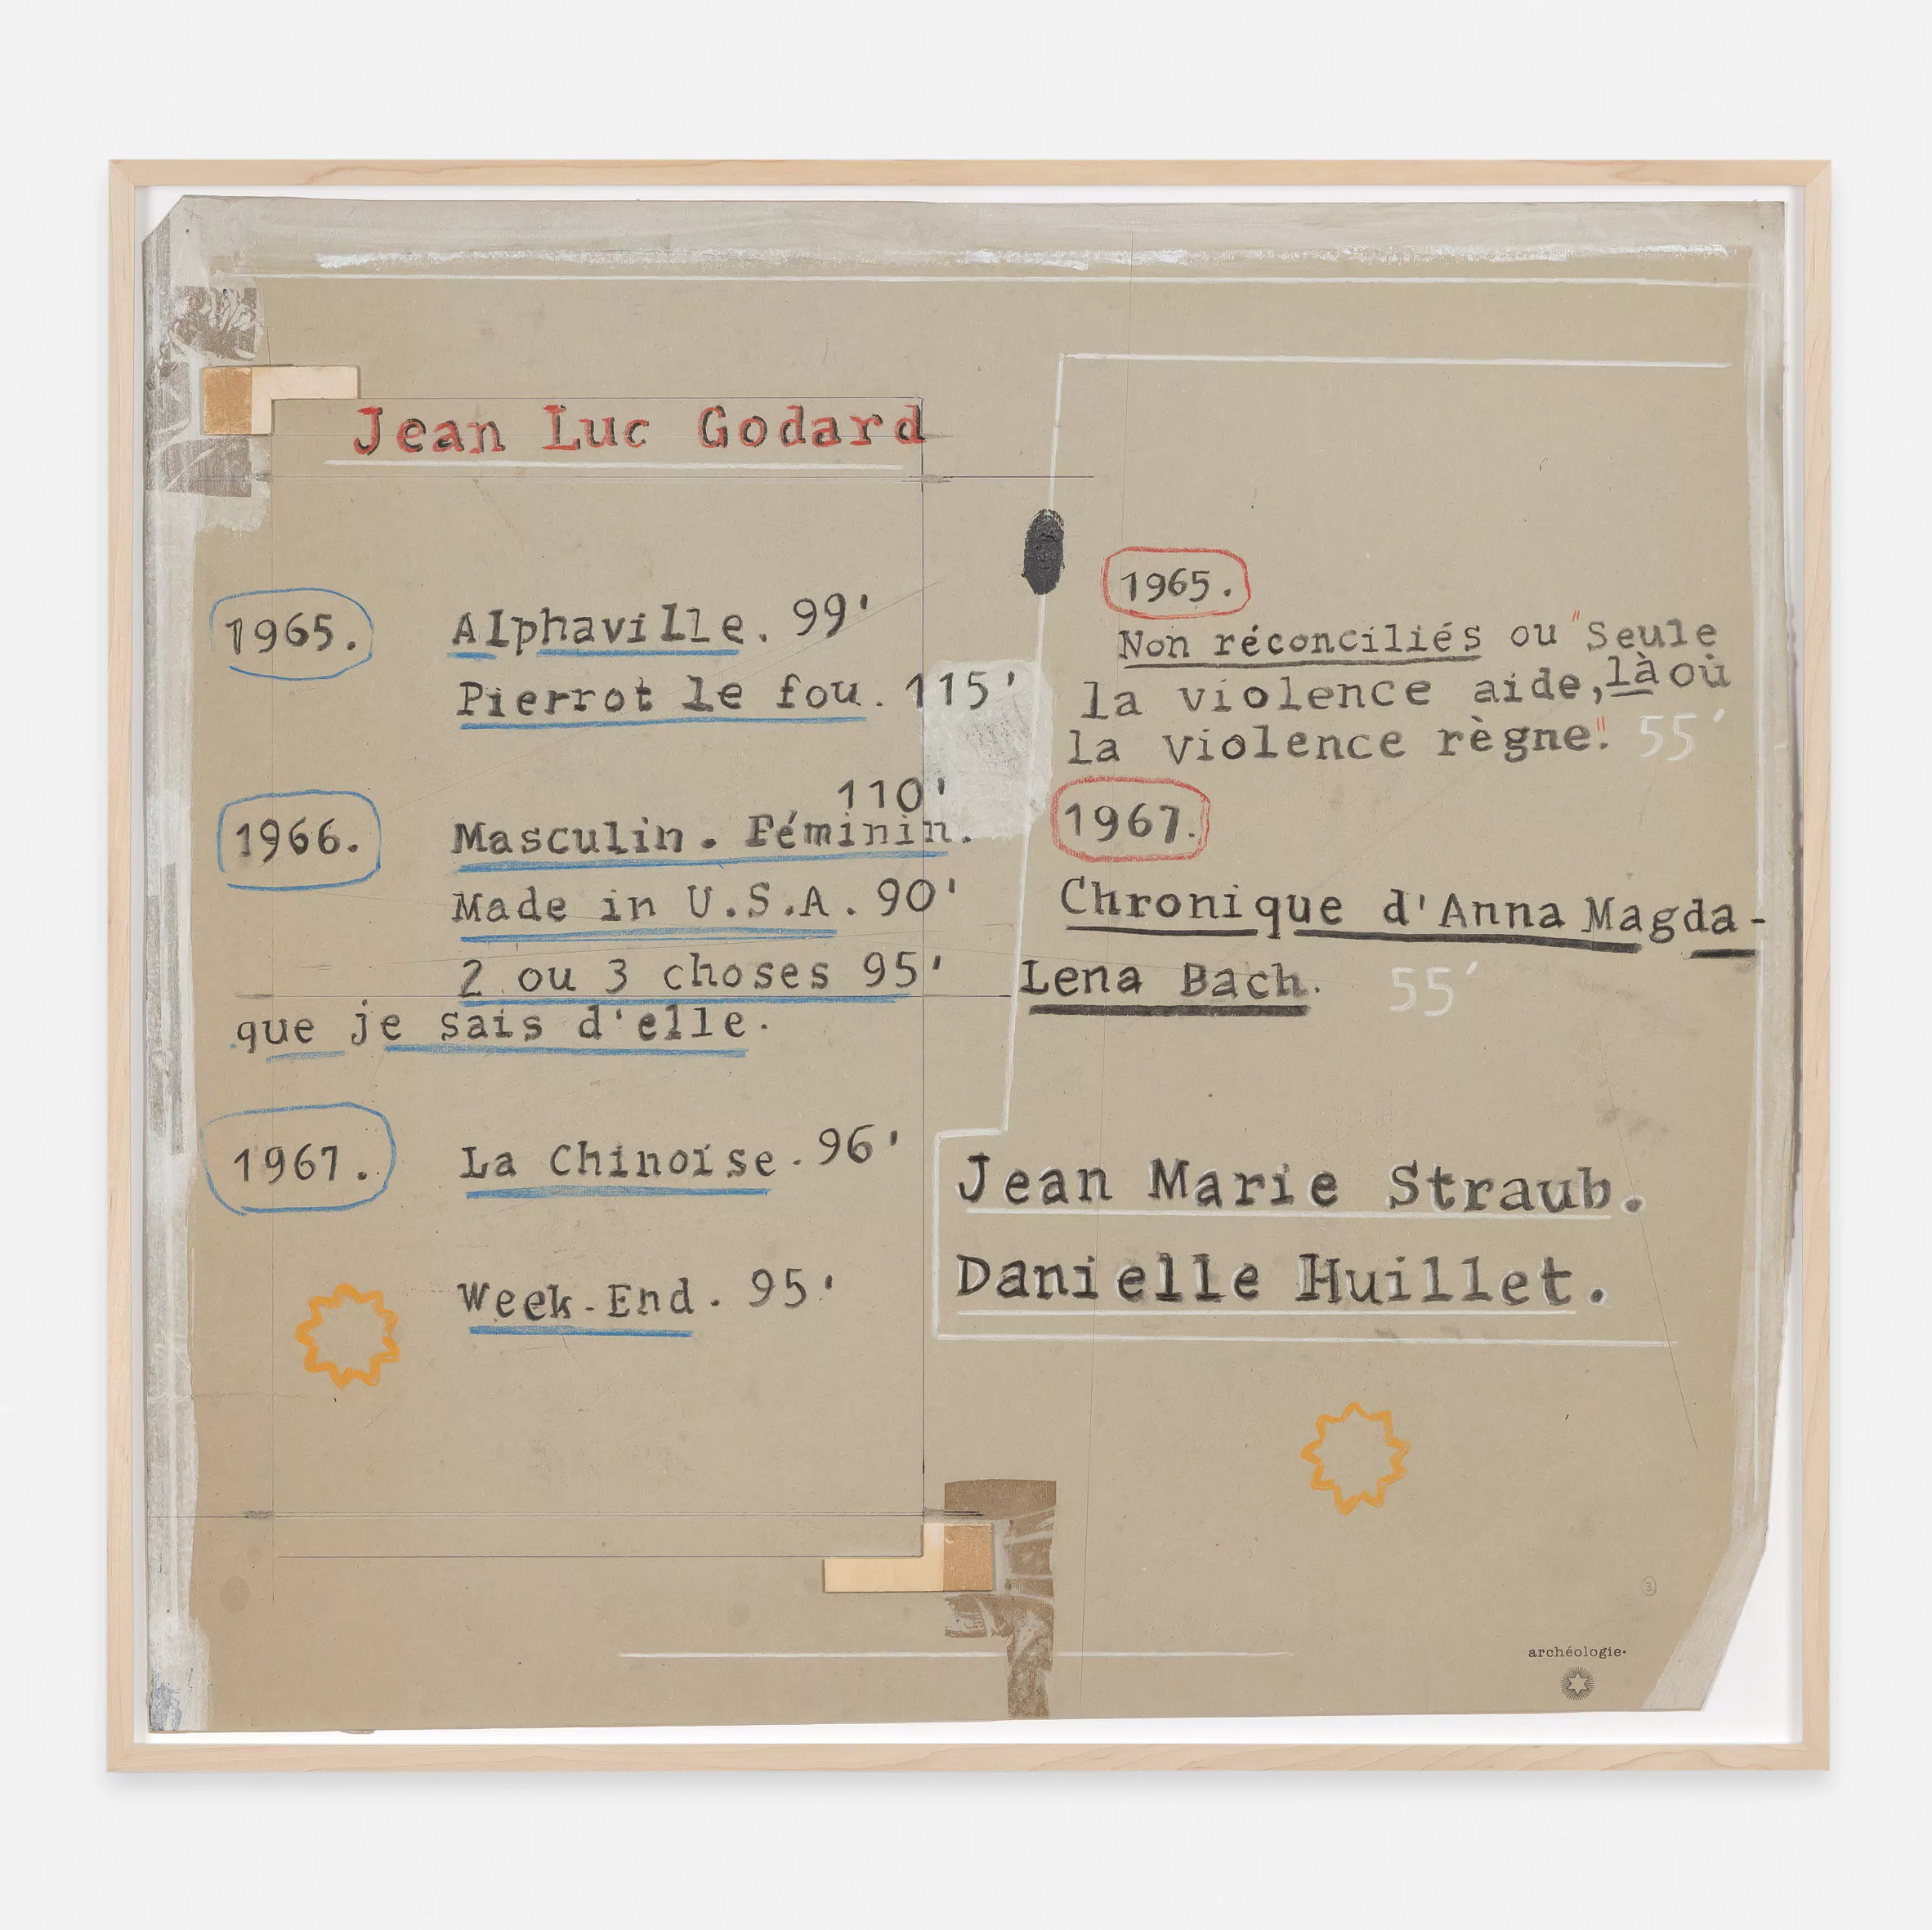 Jean Luc Godard
1965. Alphaville. 99'
Pierrot le fou. 115'
110'
1966. Masculin. Féminin.
Made in U.S.A. 90'
2 ou 3 choses 95'
que je sais d'elle.
1967. La Chinoise. 96'
Week-End. 95'
1965.
Non réconciliés ou "Seule
la violence aide, là où
la violence règne." 55'
1967.
Chronique d'Anna Magda-
Lena Bach. 55'
Jean Marie Straub.
Danielle Huillet.
3
archéologie.